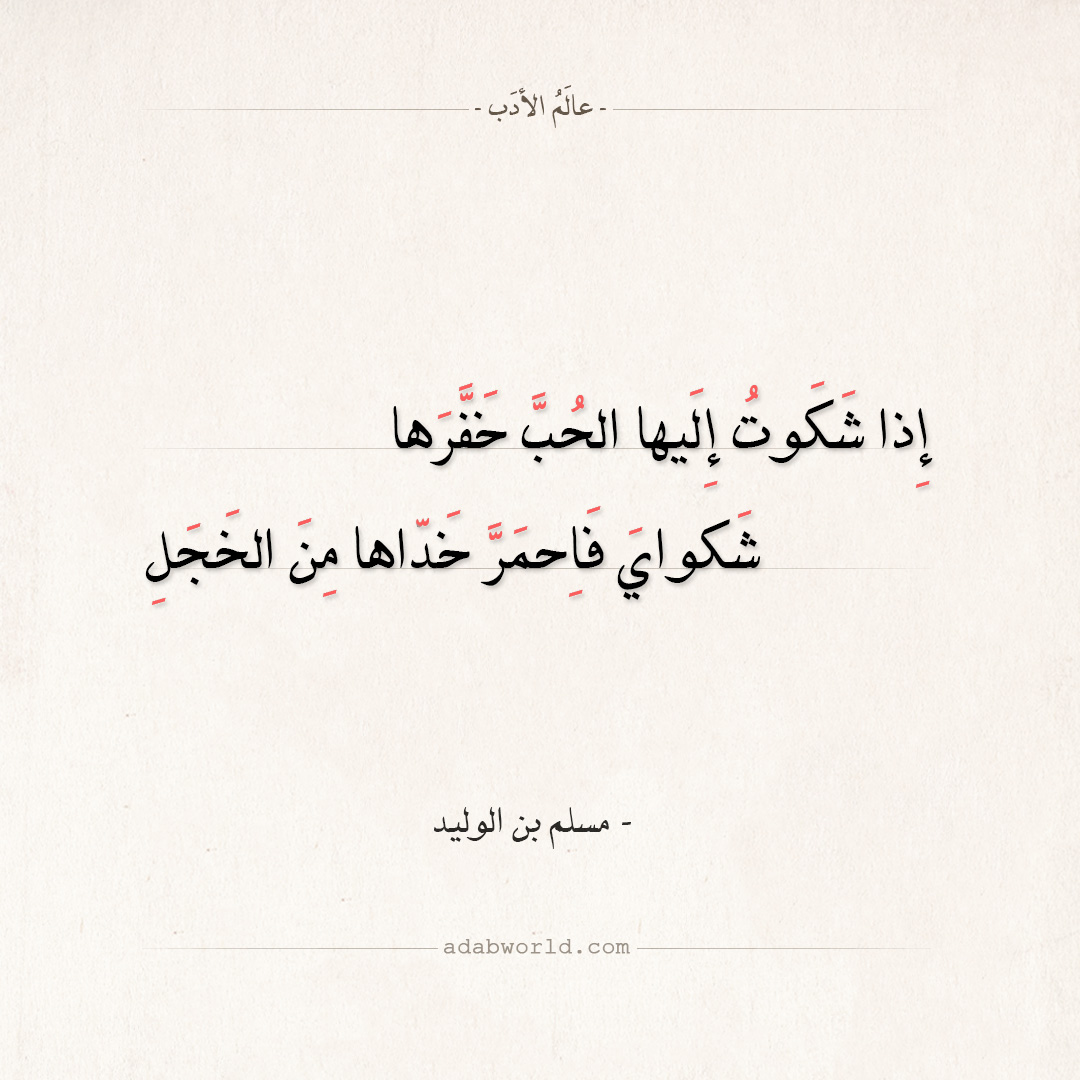 - عالَمُ الأدَب -
إِذا شَكَوتُ إِلَيها الحُبَّ خَفَّرَها
شَكوايَ فَاِحمَرَّ خَدّاها مِنَ الخَجَلِ
- مسلم بن الوليد
adabworld.com